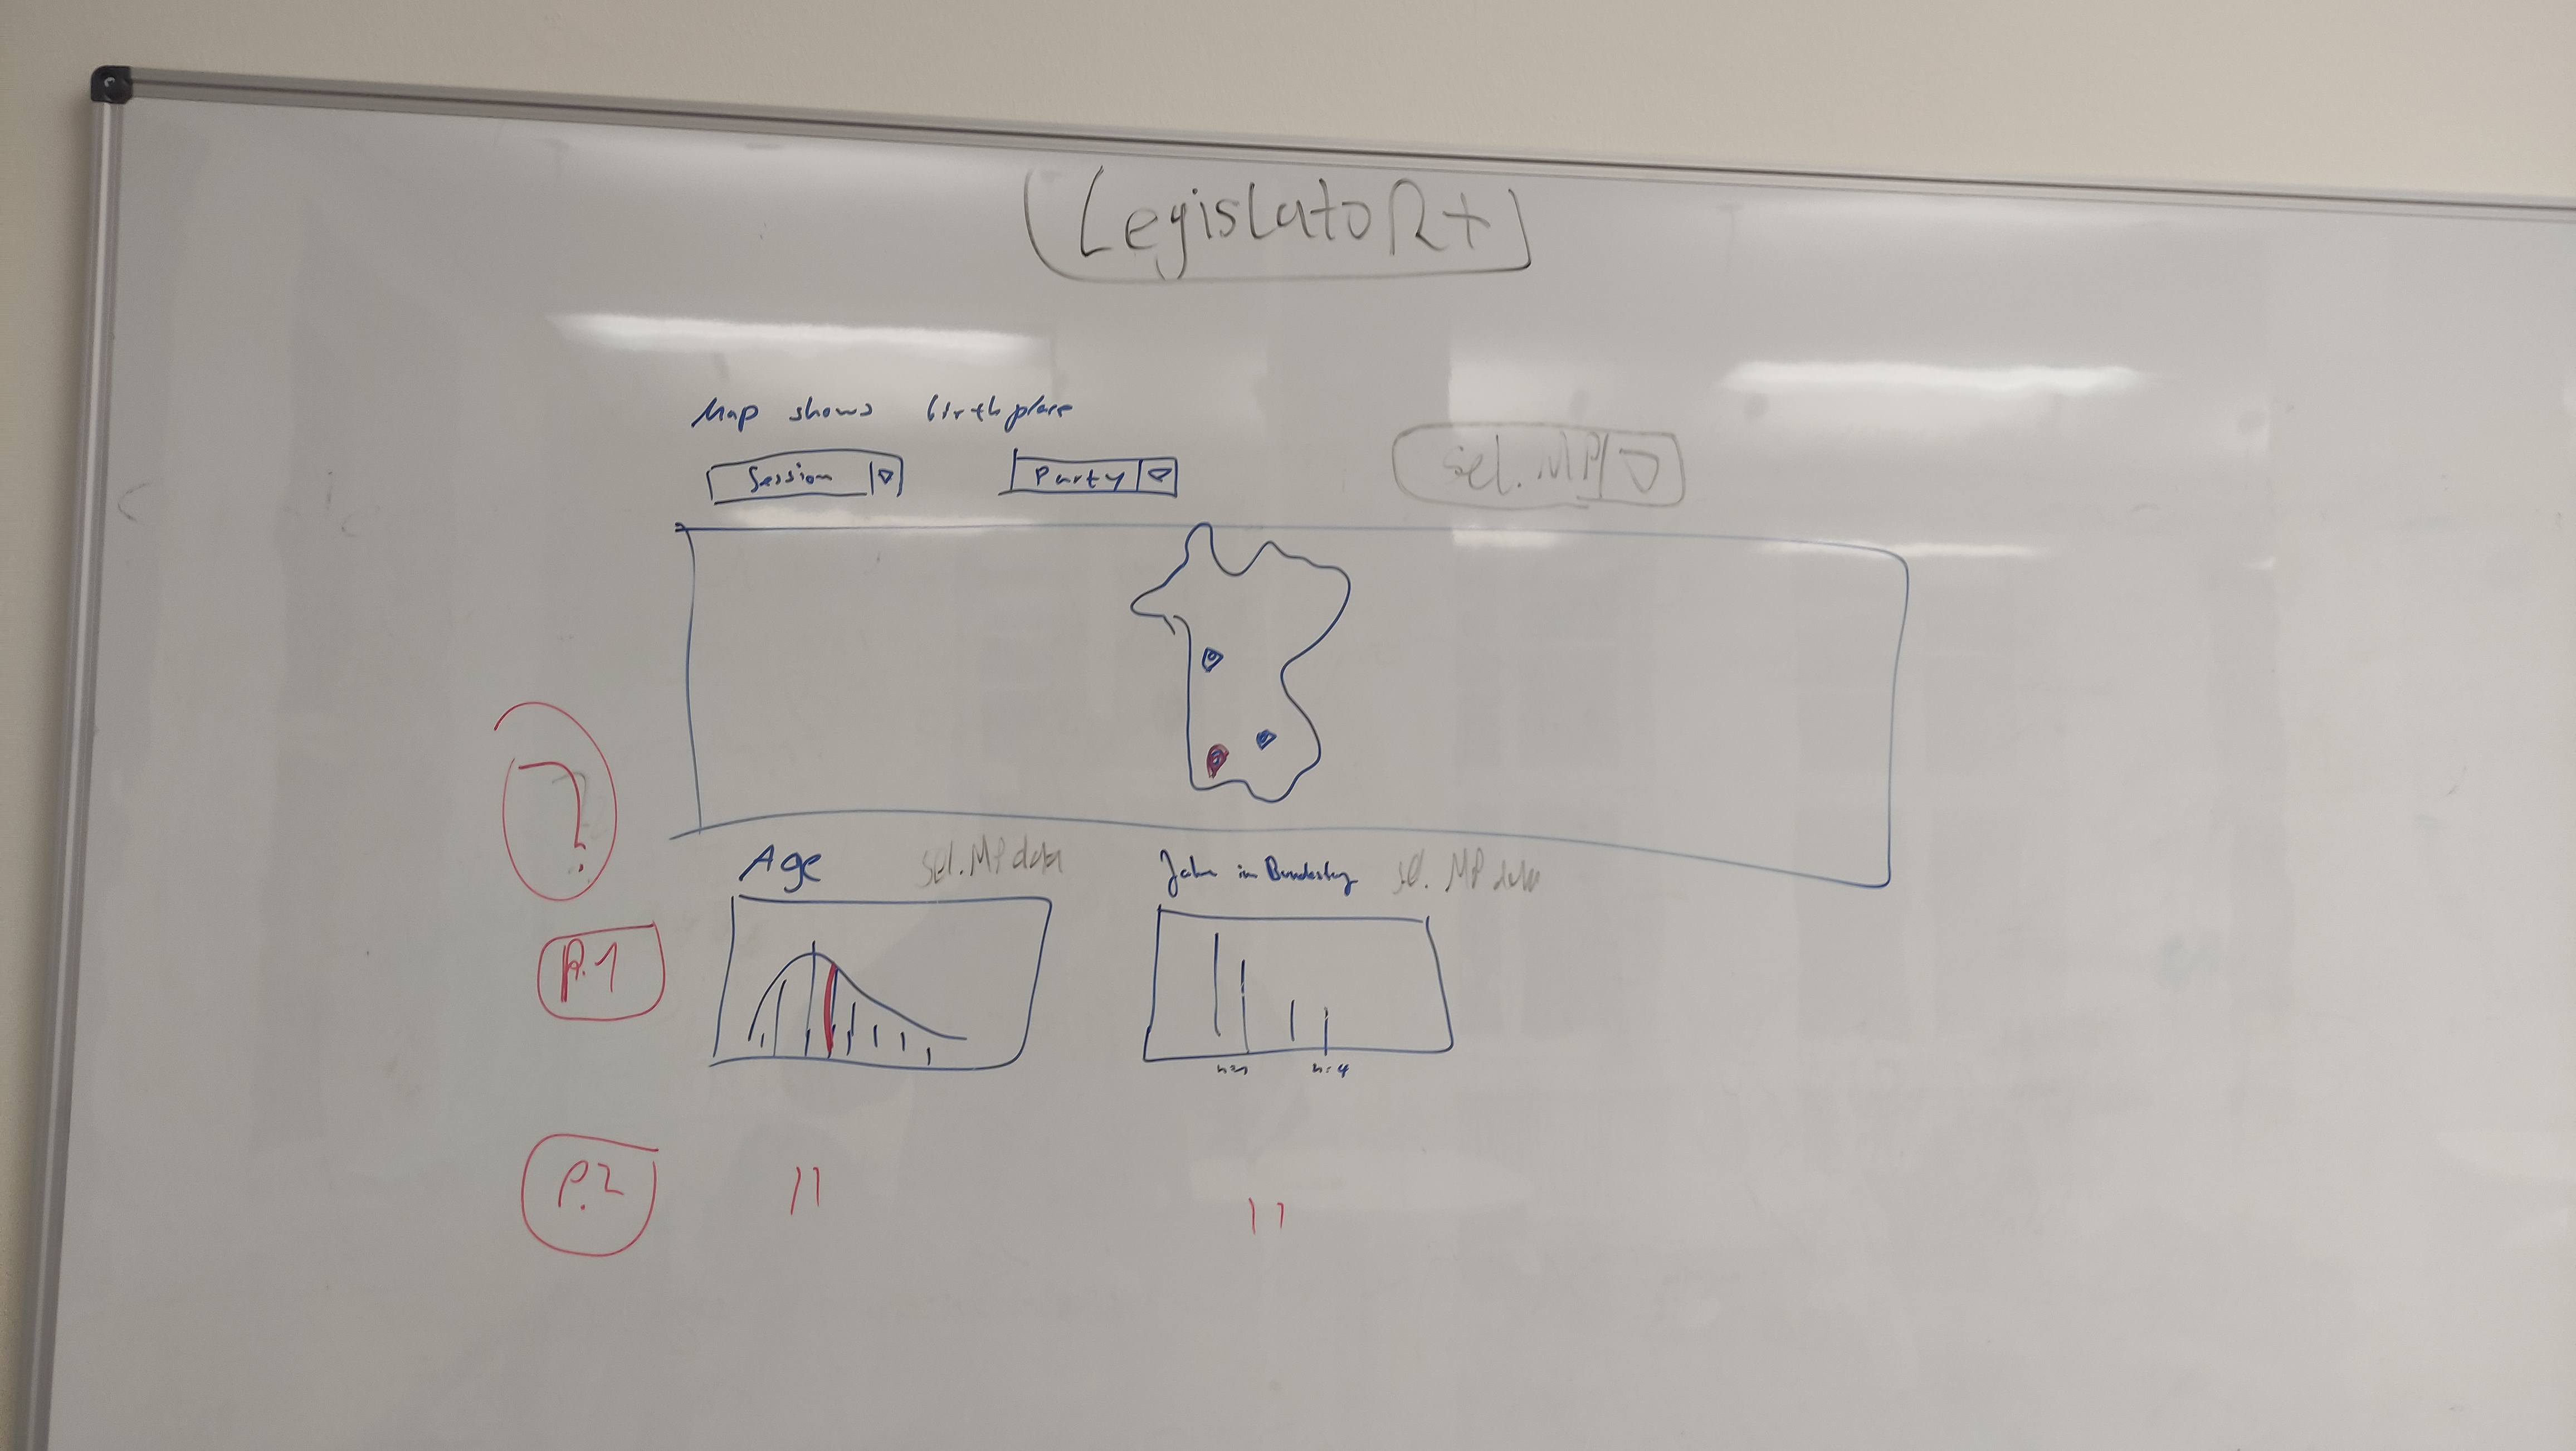 LegislatoR+
Map shows birthplace
Session Party sel. MP
?
Age sel. MP data Jahre im Bundestag sel. MP data
P.1
n=4
P.2 11 11